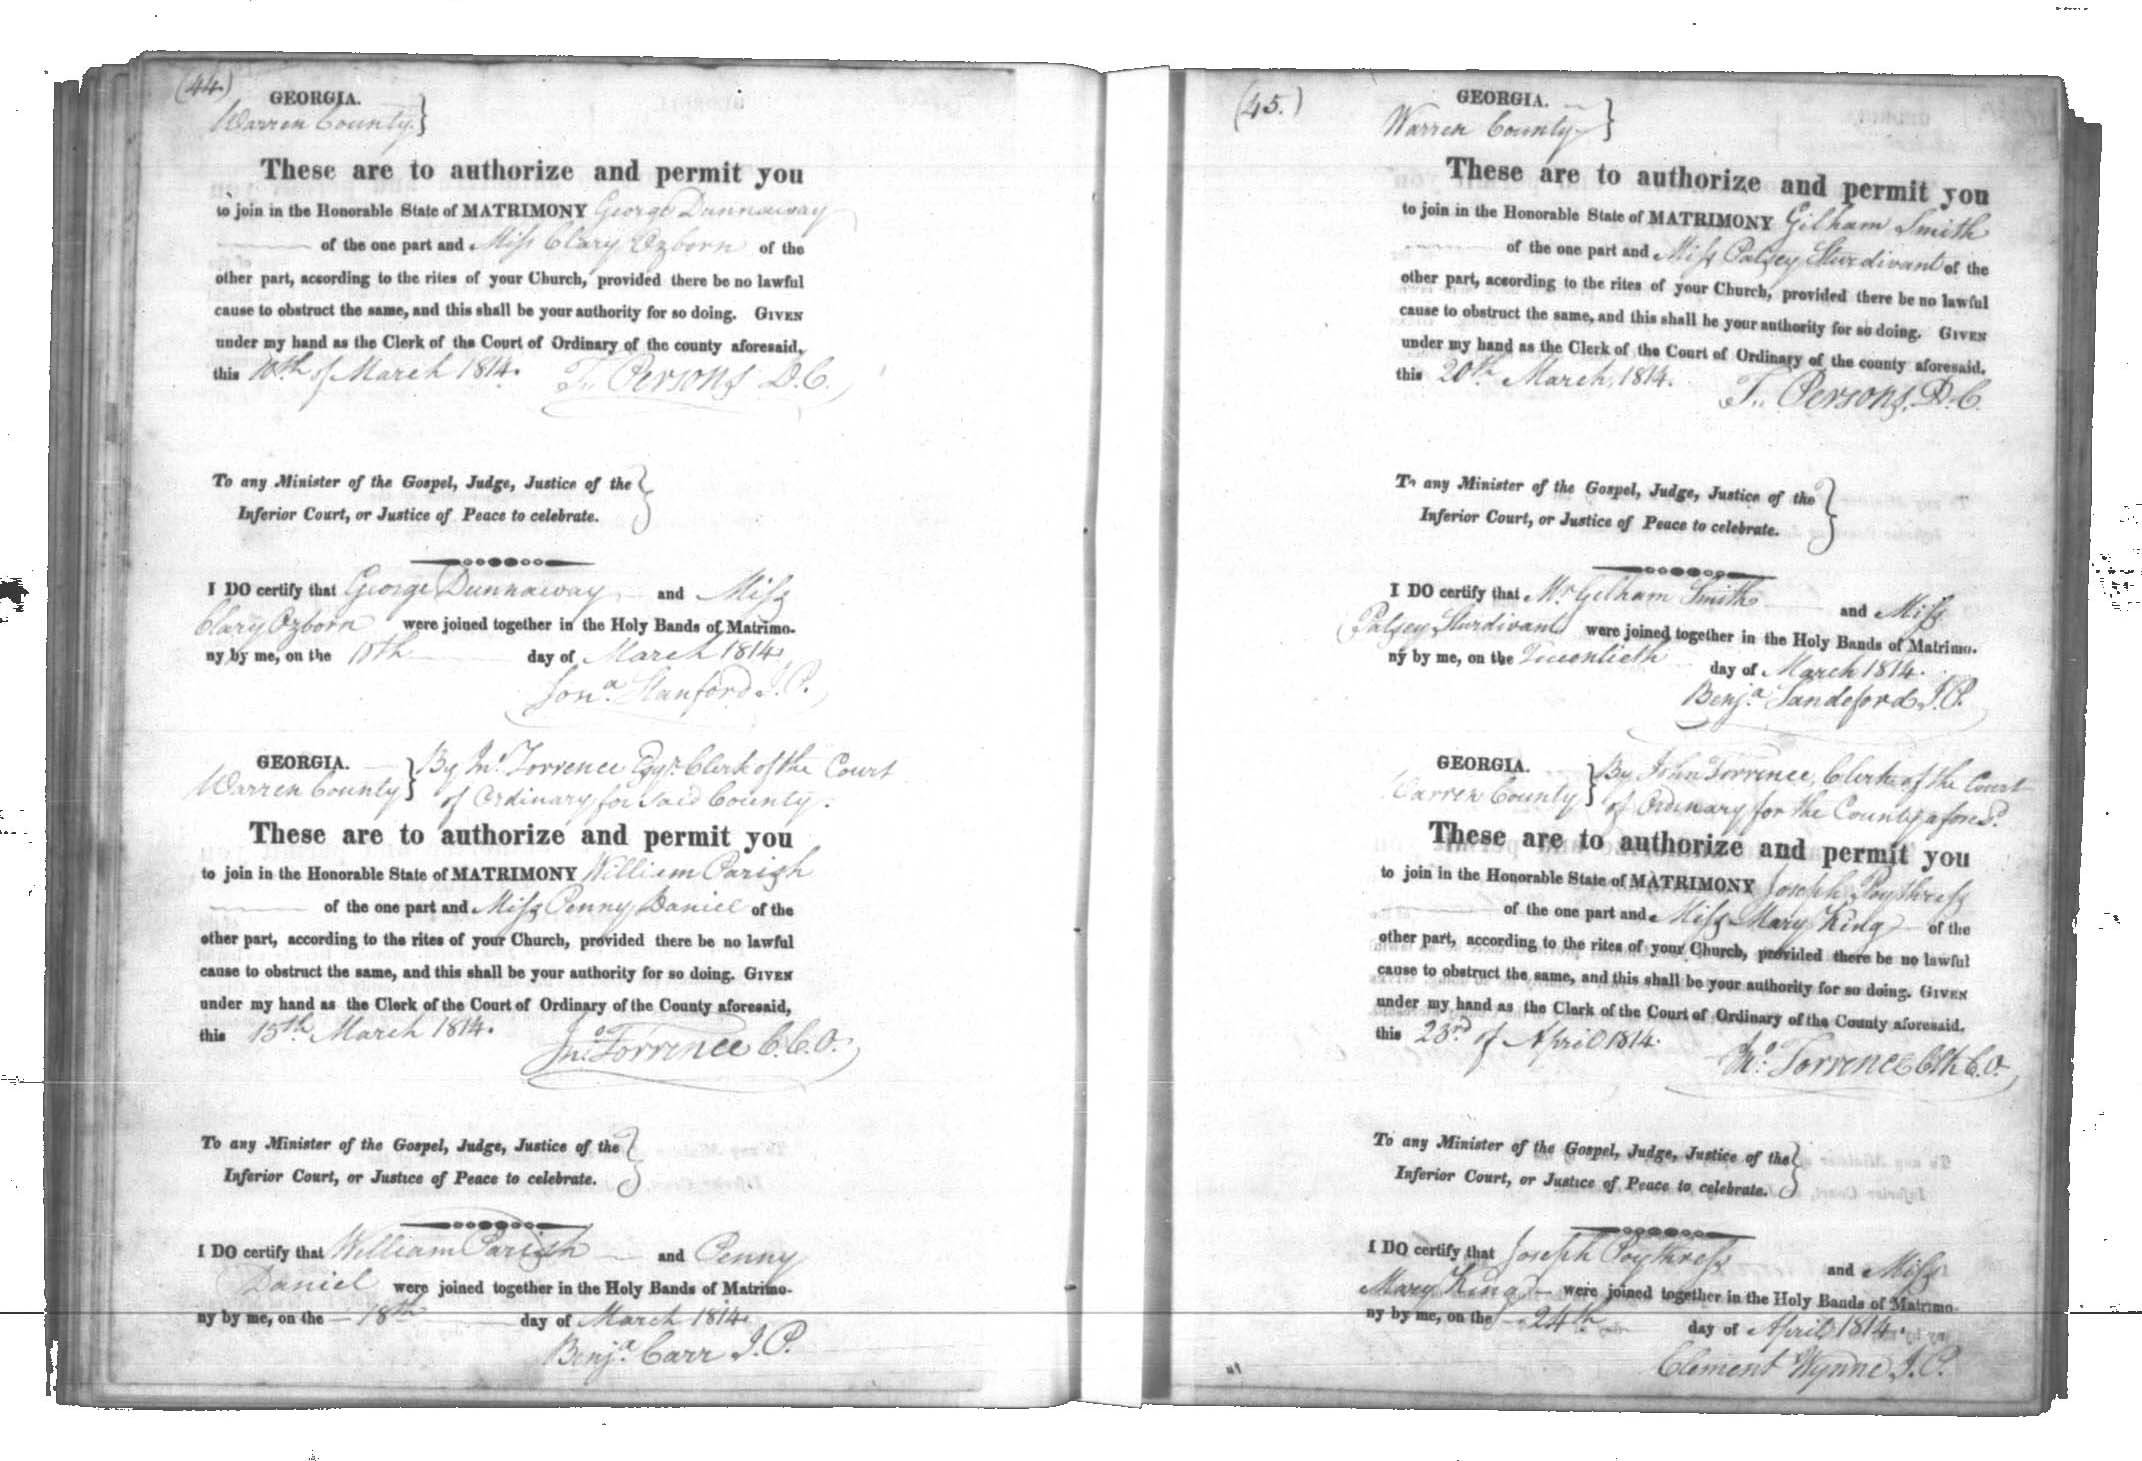 (44.)
GEORGIA.
Warren County. }
These are to authorize and permit you
to join in the Honorable State of MATRIMONY George Dunnaway
of the one part and Miss Clary Ozborn of the
other part, according to the rites of your Church, provided there be no lawful
cause to obstruct the same, and this shall be your authority for so doing. GIVEN
under my hand as the Clerk of the Court of Ordinary of the county aforesaid,
this 10th of March 1814. T. Persons D.C.
To any Minister of the Gospel, Judge, Justice of the }
Inferior Court, or Justice of Peace to celebrate.
I DO certify that George Dunnaway and Miss
Clary Ozborn were joined together in the Holy Bands of Matrimo-
ny by me, on the day of March 1814.
Jona. Stanford J.P.
GEORGIA. } By Jno. Torrence Esqr. Clerk of the Court
Warren County } of Ordinary for said County.
These are to authorize and permit you
to join in the Honorable State of MATRIMONY William Parish
of the one part and Miss Penny Daniel of the
other part, according to the rites of your Church, provided there be no lawful
cause to obstruct the same, and this shall be your authority for so doing. GIVEN
under my hand as the Clerk of the Court of Ordinary of the County aforesaid,
this 15th March 1814. Jno. Torrence C.C.O.
To any Minister of the Gospel, Judge, Justice of the }
Inferior Court, or Justice of Peace to celebrate.
I DO certify that William Parish and Penny
Daniel were joined together in the Holy Bands of Matrimo-
ny by me, on the 18th day of March 1814.
Benja. Carr J.P.
(45.)
GEORGIA.
Warren County }
These are to authorize and permit you
to join in the Honorable State of MATRIMONY Gilham Smith
of the one part and Miss Patsey Sturdivant of the
other part, according to the rites of your Church, provided there be no lawful
cause to obstruct the same, and this shall be your authority for so doing. GIVEN
under my hand as the Clerk of the Court of Ordinary of the county aforesaid.
this 20th March, 1814. T. Persons, D.C.
To any Minister of the Gospel, Judge, Justice of the }
Inferior Court, or Justice of Peace to celebrate.
I DO certify that Mr Gilham Smith and Miss
Patsey Sturdivant were joined together in the Holy Bands of Matrimo-
ny by me, on the Twentieth day of March 1814.
Benja. Sandeford J.P.
GEORGIA. } By John Torrence, Clerk of the Court
Warren County } of Ordinary for the County aforesd.
These are to authorize and permit you
to join in the Honorable State of MATRIMONY Joseph Poythress
of the one part and Miss Mary King of the
other part, according to the rites of your Church, provided there be no lawful
cause to obstruct the same, and this shall be your authority for so doing. GIVEN
under my hand as the Clerk of the Court of Ordinary of the County aforesaid.
this 23rd of April 1814. Jno. Torrence Clk C.O.
To any Minister of the Gospel, Judge, Justice of the }
Inferior Court, or Justice of Peace to celebrate.
I DO certify that Joseph Poythress and Miss
Mary King were joined together in the Holy Bands of Matrimo-
ny by me, on the 24th day of April 1814.
Clement Wynne J.P.